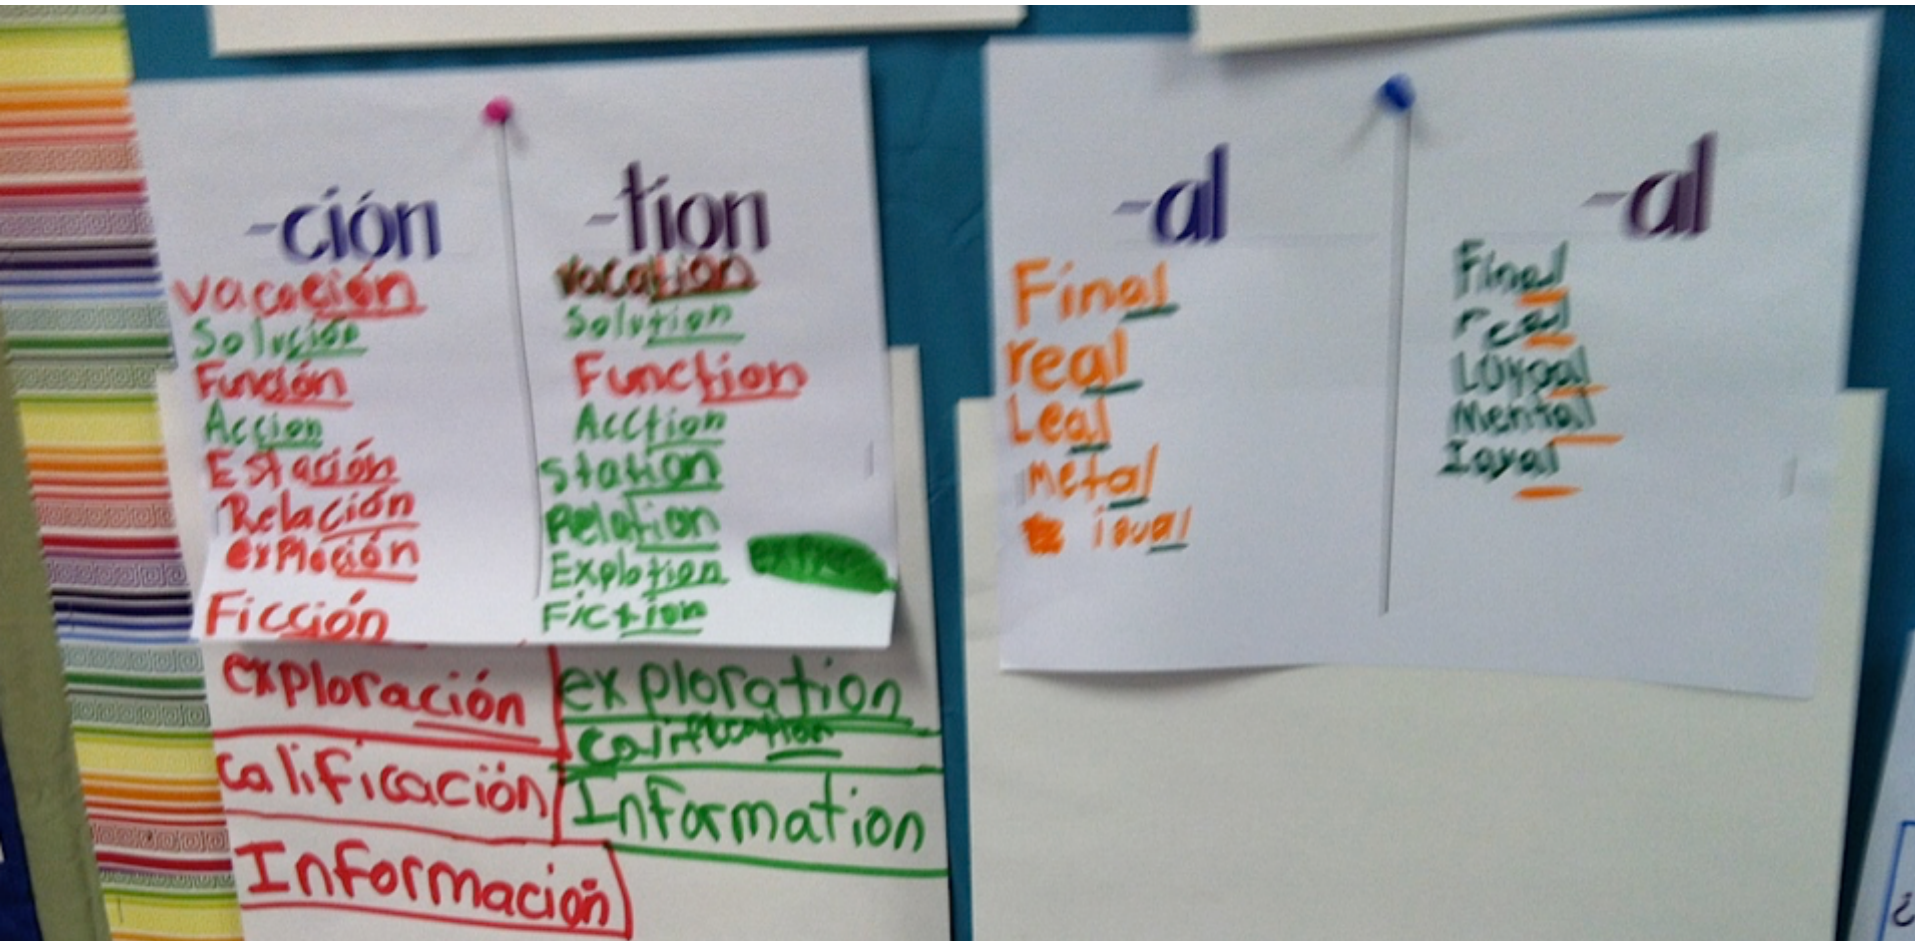 -ción
vacación
Solución
Función
Accion
Estación
Relación
exploción
Ficción
exploración
calificación
Información
-tion
vacation
Solution
Function
Acction
station
Relation
Explotion
Fiction
exploration
Information
-al
Final
real
Leal
metal
-al
Final
real
Loyal
Mental
¿